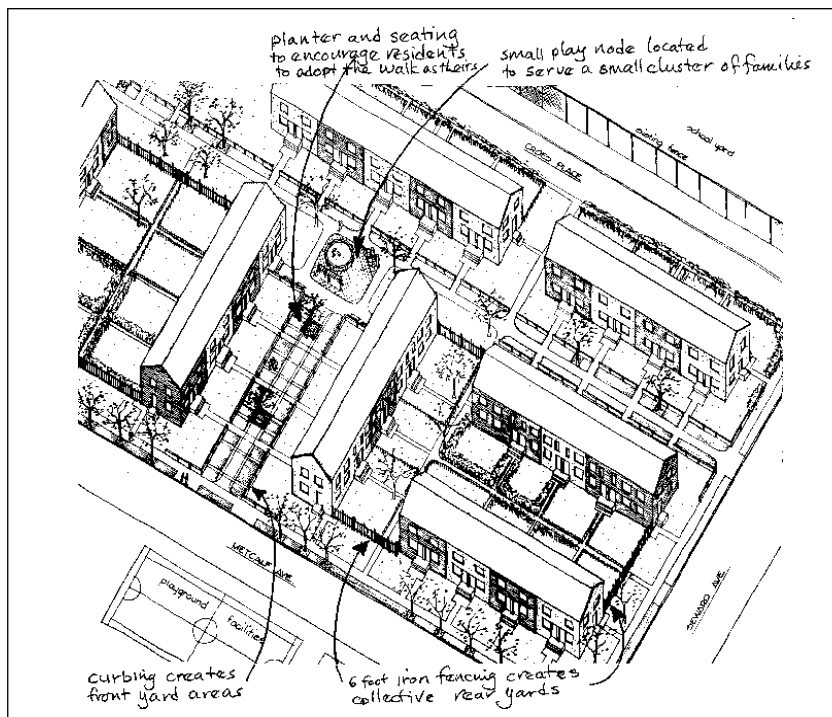 planter and seating
to encourage residents
to adopt the walk as theirs
small play node located
to serve a small cluster of families
school yard
existing fence
CROES PLACE
METCALF AVE.
SEWARD AVE.
playground
facilities
curbing creates
front yard areas
6 foot iron fencing creates
collective rear yards